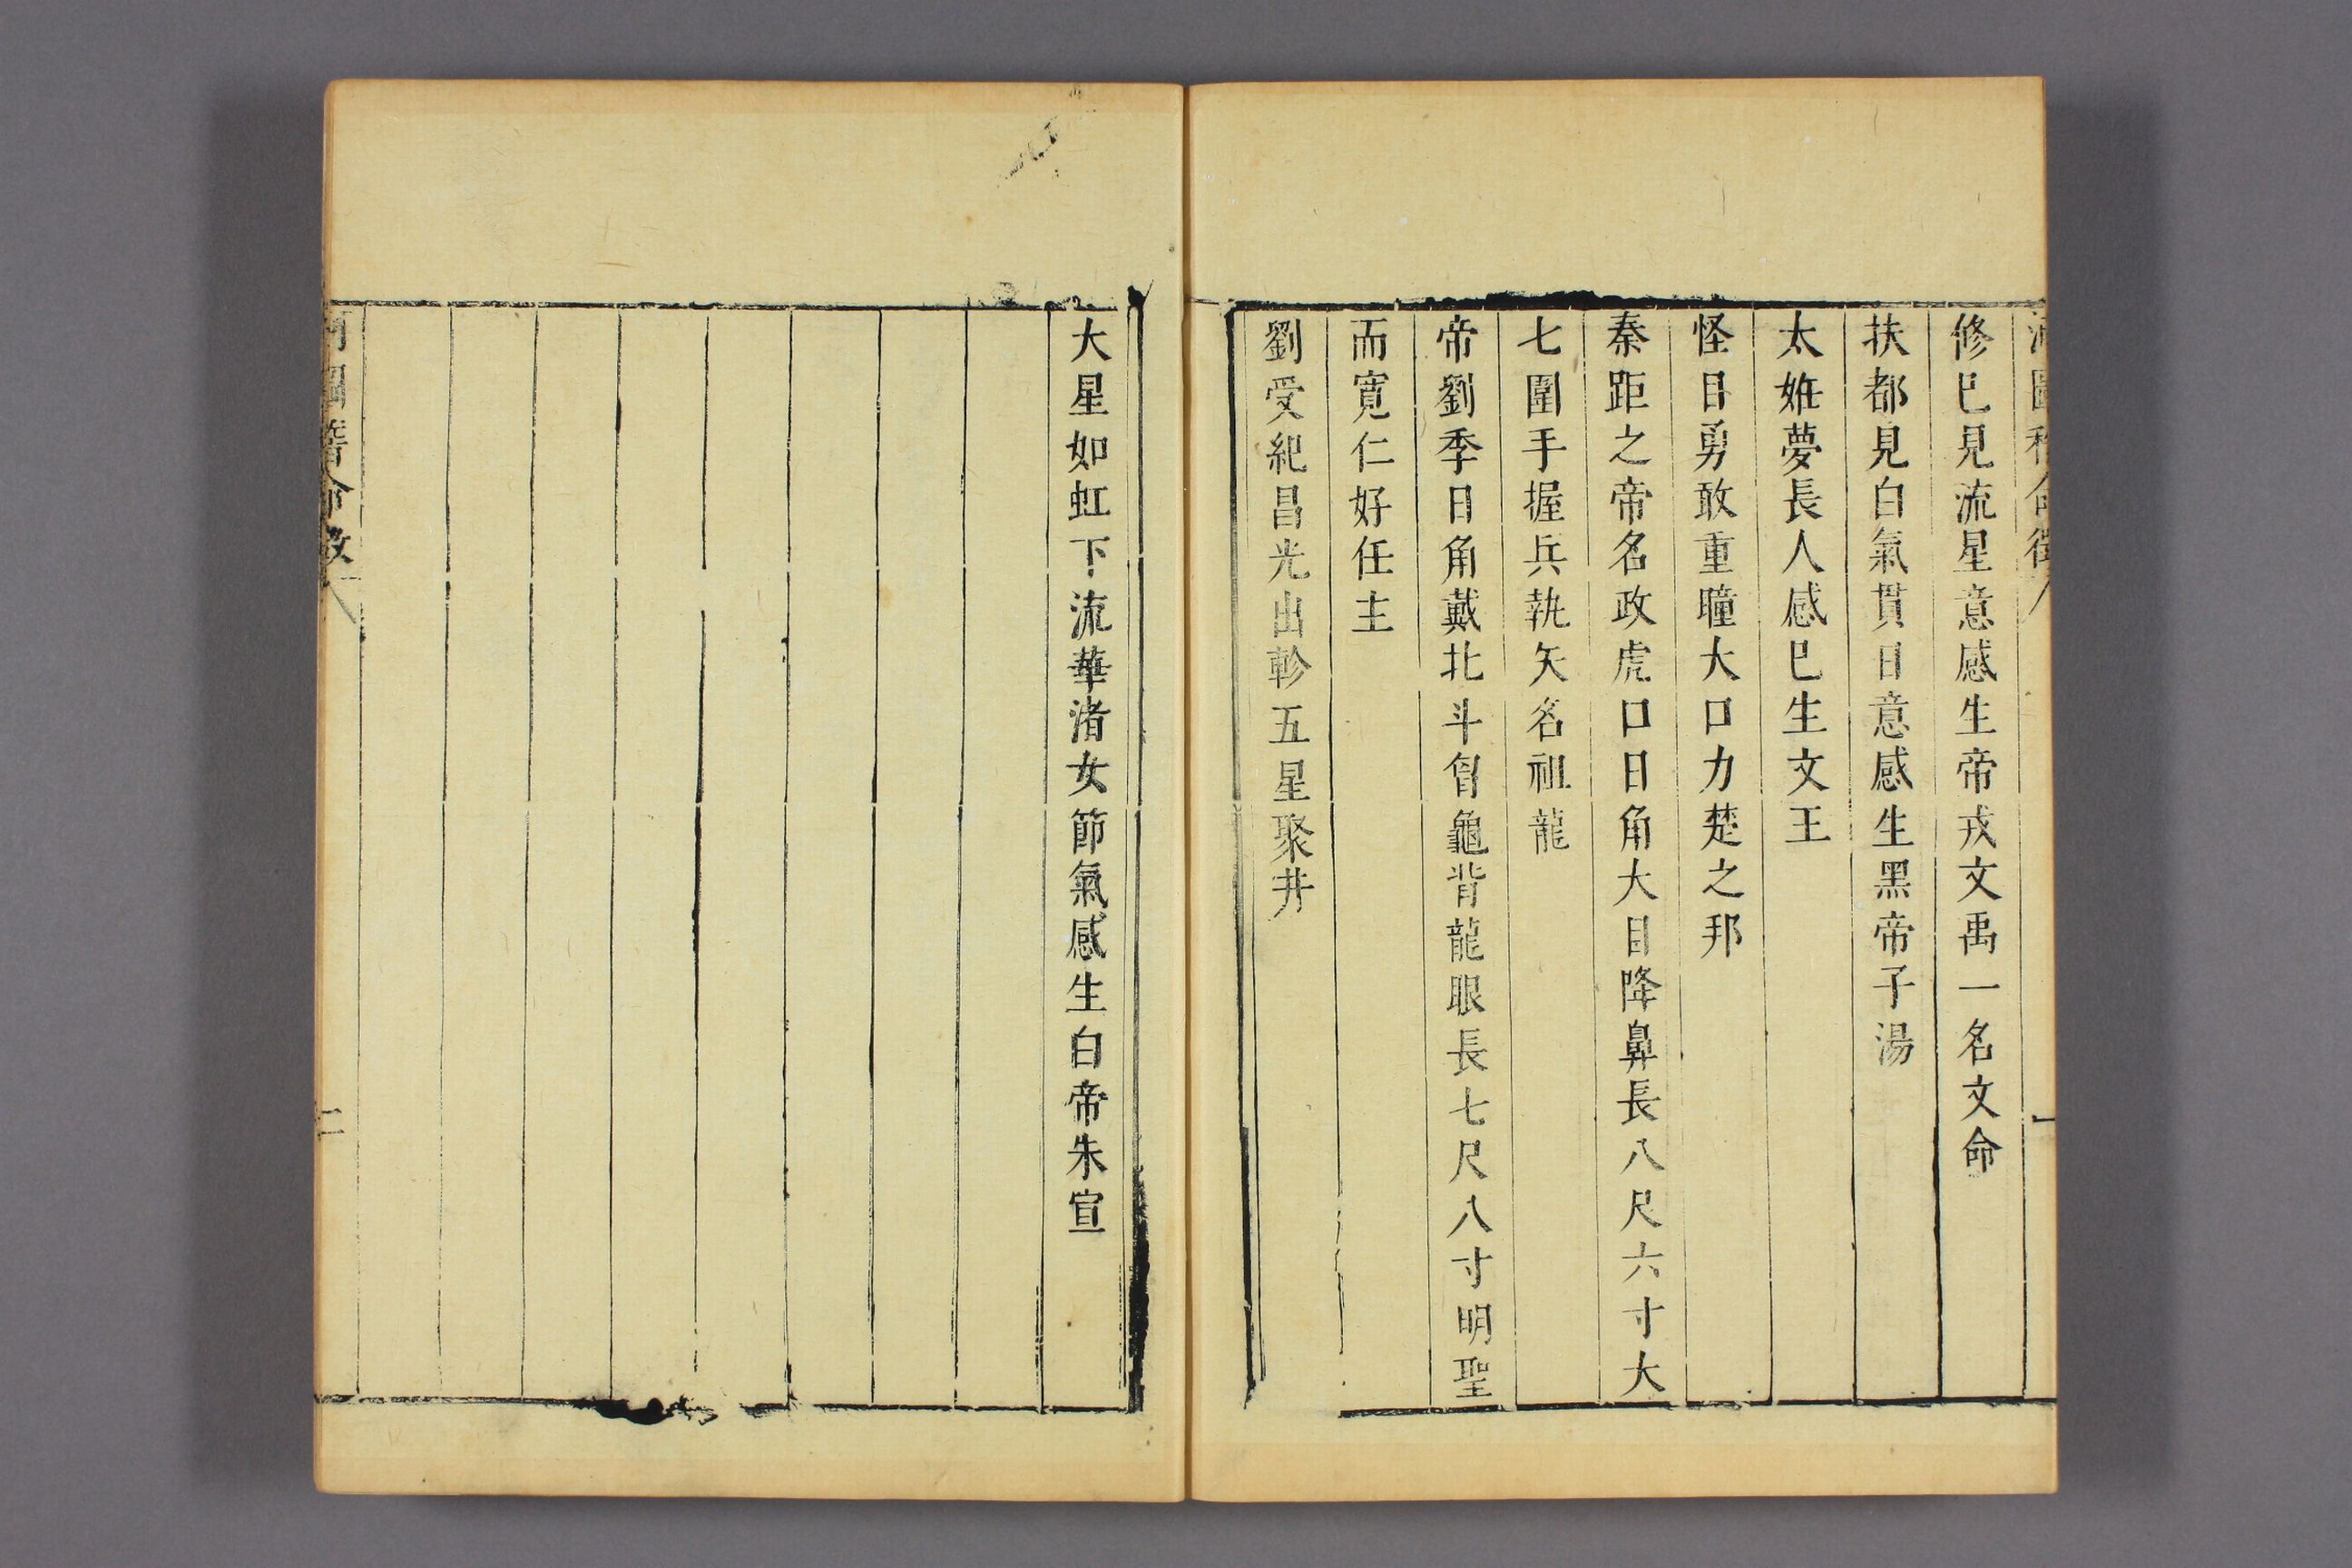 修巳見流星意感生帝戎文禹一名文命
扶都見白氣貫日意感生黑帝子湯
太姙夢長人感巳生文王
怪目勇敢重瞳大口力楚之邦
秦距之帝名政虎口日角大目降鼻長八尺六寸大
七圍手握兵執矢名祖龍
帝劉季日角戴北斗胷龜背龍眼長七尺八寸明聖
而寬仁好任主
劉受紀昌光出軫五星聚井
大星如虹下流華渚女節氣感生白帝朱宣
二